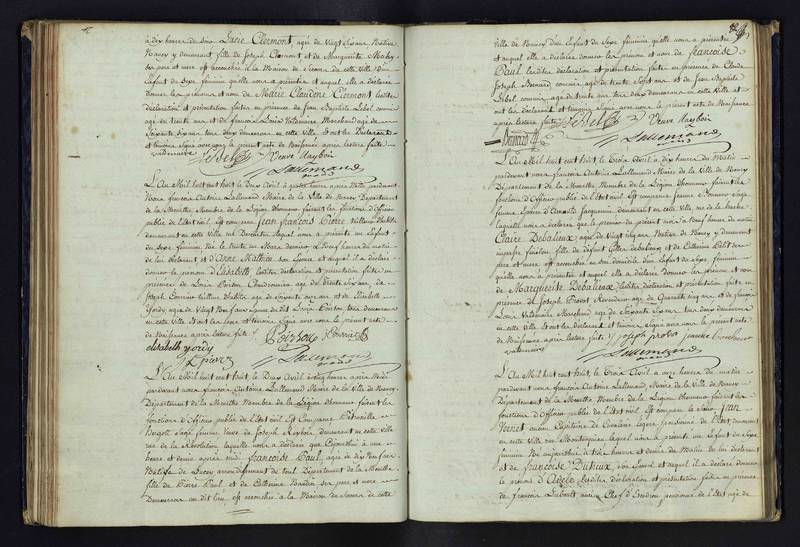 à dix heures de Soir Lucie Clermont, agée de Vingt six ans Native
Nancy y demeurant fille de Joseph Clermont et de Marguerite
per pere et mere est accouchée à la Maison de Secours de cette Ville d'un
Enfant du Sexe féminin qu'elle nous a présentée et auquel elle a déclaré
donner les prénoms et nom de Marie Claudine Clermont lesdites
déclaration et présentation faites en présence de Jean Baptiste Lebel commis
agé de trente ans et de françois Louis Valdenaire Marchand agé de
Soixante Six ans tous deux demeurans en cette Ville et ont les Déclarant
et témoins Signé avec nous le présent acte de Naissance après lecture faite
Valdenaire Lebel Veuve
Lallemand
maire
L'An Mil huit cent huit le Deux Avril à quatre heures après Midi pardevant
Nous françois Antoine Lallemand Maire de la Ville de Nancy Département
de la Meurthe Membre de la Légion d'honneur faisant les fonctions d'Officier
public de l'Etat civil Est comparu Jean François Pierre tailleur d'habits
demeurant en cette Ville lequel nous a présenté un Enfant
du Sexe féminin née le trente un Mars dernier à Neuf heures du matin
de lui déclarant et d'Anne Mathieu Son Epouse et auquel il a déclaré
donner le prénom d'Elisabeth lesdites déclaration et présentation faites en
présence de Louis Poirson Cordonnier agé de Trente Six ans, de
Joseph tailleur d'habits agé de Soixante onze ans et de Elisabeth
Yordy agée de Vingt Neuf ans Epouse dudit Louis Poirson tous demeurans
en cette Ville et ont les pere et témoins Signé avec nous le présent acte
de Naissance après lecture faite Poirson
elisabeth yordy
Pierre Lallemand
maire
L'An Mil huit cent huit le Deux Avril à cinq heures après Midi
pardevant nous françois Antoine Lallemand Maire de la Ville de Nancy
Département de la Meurthe Membre de la Légion d'honneur faisant les
fonctions d'Officier public de l'Etat civil Est Comparue Pétronille
Sage femme Veuve de Joseph demeurant en cette Ville
rue de la Révolution laquelle nous a déclaré que Cejourd'hui à une
heure et demie après midi françoise Paul agée de dix Neuf ans
Native de Lucey arrondissement de toul Département de la Meurthe
fille de Pierre Paul et de Catherine Ses pere et mere et
Demeurant audit lieu est accouchée à la Maison de Secours de cette
Ville de Nancy d'un Enfant du Sexe féminin qu'elle nous a présenté
et auquel elle a déclaré donner les prénoms et nom de françoise
Paul lesdites déclaration et présentation faites en présence de Claude
Joseph Bernard commis agé de trente Sept ans et de Jean Baptiste
Lebel commis agé de trente un ans tous deux demeurans en cette Ville et
ont les déclarant et témoins Signé avec nous le présent acte de Naissance
après lecture faite Lebel Veuve
Bernard Lallemand
maire
L'An Mil huit cent huit le Trois Avril à dix heures du Matin
pardevant nous françois Antoine Lallemand Maire de la Ville de Nancy
Département de la Meurthe Membre de la Légion d'honneur faisant les
fonctions d'Officier public de l'Etat civil Est comparue Jeanne Sage
femme Epouse demeurant en cette Ville
laquelle nous a déclaré que le premier du présent mois à Neuf heures du matin
Claire Debalieux agée de Vingt cinq ans Native de Nancy y demeurant
fille de défunt Gilles Debalieux et de Catherine Petit Ses
pere et mere est accouchée en Son domicile d'un Enfant du Sexe féminin
qu'elle nous a présenté et auquel elle a déclaré donner les prénoms et nom
de Marguerite Debalieux lesdites déclaration et présentation faites en
présence de Joseph Provot agé de Quarante cinq ans et de françois
Louis Valdenaire Marchand agé de Soixante Six ans tous deux demeurans
en cette Ville et ont les déclarant et témoins Signé avec nous le présent acte
de Naissance après lecture faite joseph provot jeanne
Valdenaire Lallemand
maire
L'An Mil huit cent huit le Trois Avril à onze heures du matin
pardevant nous françois Antoine Lallemand Maire de la Ville de Nancy
Département de la Meurthe Membre de la Légion d'honneur faisant les
fonctions d'Officier public de l'Etat civil Est comparu le Sieur Jean
ancien Capitaine de Cavalerie légere pensionné de l'Etat demeurant
en cette Ville rue Montesquieu lequel nous a présenté un Enfant du Sexe
féminin heures et demie du Matin de lui déclarant
et de françoise Dutreux Son Epouse et auquel il a déclaré donner
le prénom d'Adele lesdites déclaration et présentation faites en présence
de françois ancien Chef d'Escadron pensionné de l'Etat agé de